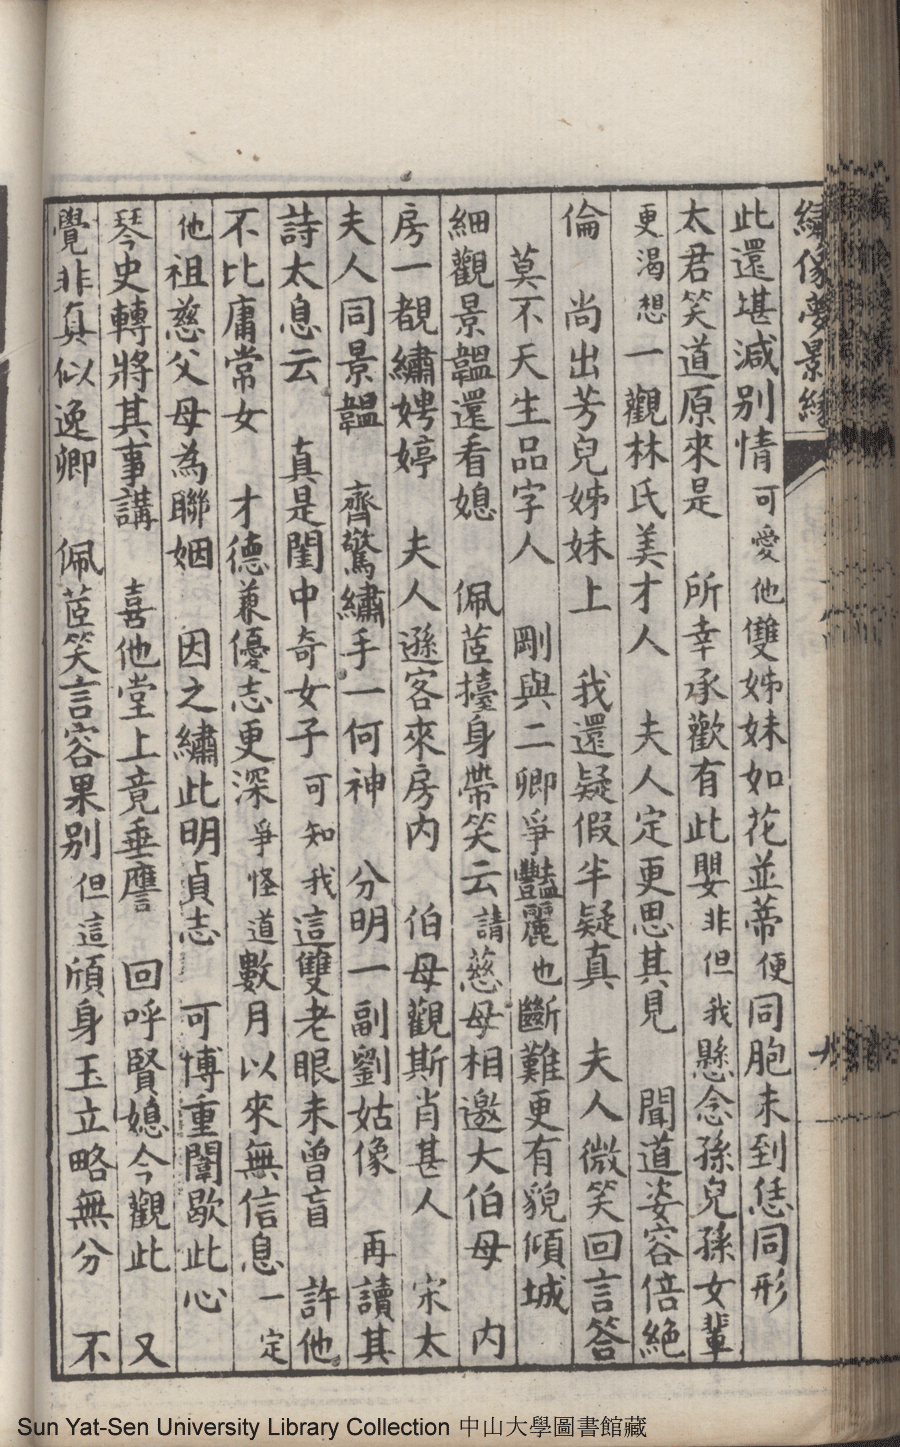 繡像夢景緣
此還堪減别情　可愛他雙姊妹如花並蒂便同胞未到恁同形
太君笑道原來是　所幸承歡有此嬰非但我懸念孫兒孫女輩
更渴想一觀林氏美才人　夫人定更思其見　聞道姿容倍絶
倫　尚出芳兒姊妹上　我還疑假半疑真　夫人微笑回言答
莫不天生品字人　剛與二卿爭豔麗也斷難更有貌傾城
細觀景韞還看媳　佩茝擡身帶笑云請慈母相邀大伯母　内
房一覩繡娉婷　夫人遜客來房内　伯母觀斯肖甚人　宋太
夫人同景韞　齊驚繡手一何神　分明一副劉姑像　再讀其
詩太息云　真是閨中奇女子可知我這雙老眼未曾盲　許他
不比庸常女　才德兼優志更深爭怪道數月以來無信息一定
他祖慈父母為聯姻　因之繡此明貞志　可博重闈歇此心
琴史轉將其事講　喜他堂上竟垂譍　回呼賢媳今觀此　又
覺非真似逸卿　佩茝笑言容果别但這頎身玉立略無分　不
Sun Yat-Sen University Library Collection 中山大學圖書館藏